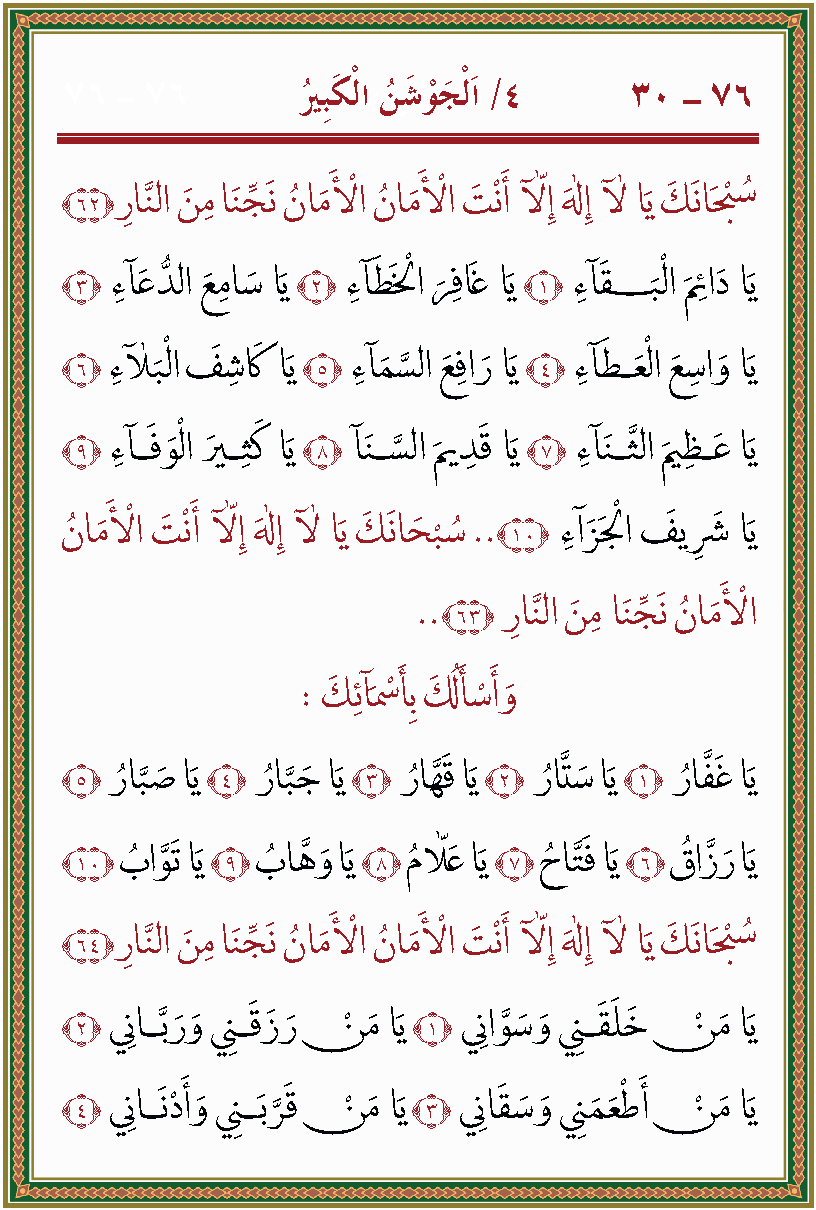 ٧٦ - ٣٠ ٤/ اَلْجَوْشَنُ الْكَبِيرُ
سُبْحَانَكَ يَا لَآ إِلٰهَ إِلَّآ أَنْتَ الْأَمَانُ الْأَمَانُ نَجِّنَا مِنَ النَّارِ ﴿٦٢﴾
يَا دَائِمَ الْبَـقَآءِ ﴿١﴾ يَا غَافِرَ الْخَطَآءِ ﴿٢﴾ يَا سَامِعَ الدُّعَآءِ ﴿٣﴾
يَا وَاسِعَ الْعَـطَآءِ ﴿٤﴾ يَا رَافِعَ السَّمَآءِ ﴿٥﴾ يَا كَاشِفَ الْبَلَآءِ ﴿٦﴾
يَا عَـظِيمَ الثَّـنَآءِ ﴿٧﴾ يَا قَدِيمَ السَّـنَآ ﴿٨﴾ يَا كَثِـيرَ الْوَفَـآءِ ﴿٩﴾
يَا شَرِيفَ الْجَزَآءِ ﴿١٠﴾.. سُبْحَانَكَ يَا لَآ إِلٰهَ إِلَّآ أَنْتَ الْأَمَانُ
الْأَمَانُ نَجِّنَا مِنَ النَّارِ ﴿٦٣﴾..
وَأَسْأَلُكَ بِأَسْمَآئِكَ :
يَا غَفَّارُ ﴿١﴾ يَا سَتَّارُ ﴿٢﴾ يَا قَهَّارُ ﴿٣﴾ يَا جَبَّارُ ﴿٤﴾ يَا صَبَّارُ ﴿٥﴾
يَا رَزَّاقُ ﴿٦﴾ يَا فَتَّاحُ ﴿٧﴾ يَا عَلَّامُ ﴿٨﴾ يَا وَهَّابُ ﴿٩﴾ يَا تَوَّابُ ﴿١٠﴾
سُبْحَانَكَ يَا لَآ إِلٰهَ إِلَّآ أَنْتَ الْأَمَانُ الْأَمَانُ نَجِّنَا مِنَ النَّارِ ﴿٦٤﴾
يَا مَنْ خَلَقَـنِي وَسَوَّانِي ﴿١﴾ يَا مَنْ رَزَقَـنِي وَرَبَّـانِي ﴿٢﴾
يَا مَنْ أَطْعَمَنِي وَسَقَانِي ﴿٣﴾ يَا مَنْ قَرَّبَـنِي وَأَدْنَـانِي ﴿٤﴾